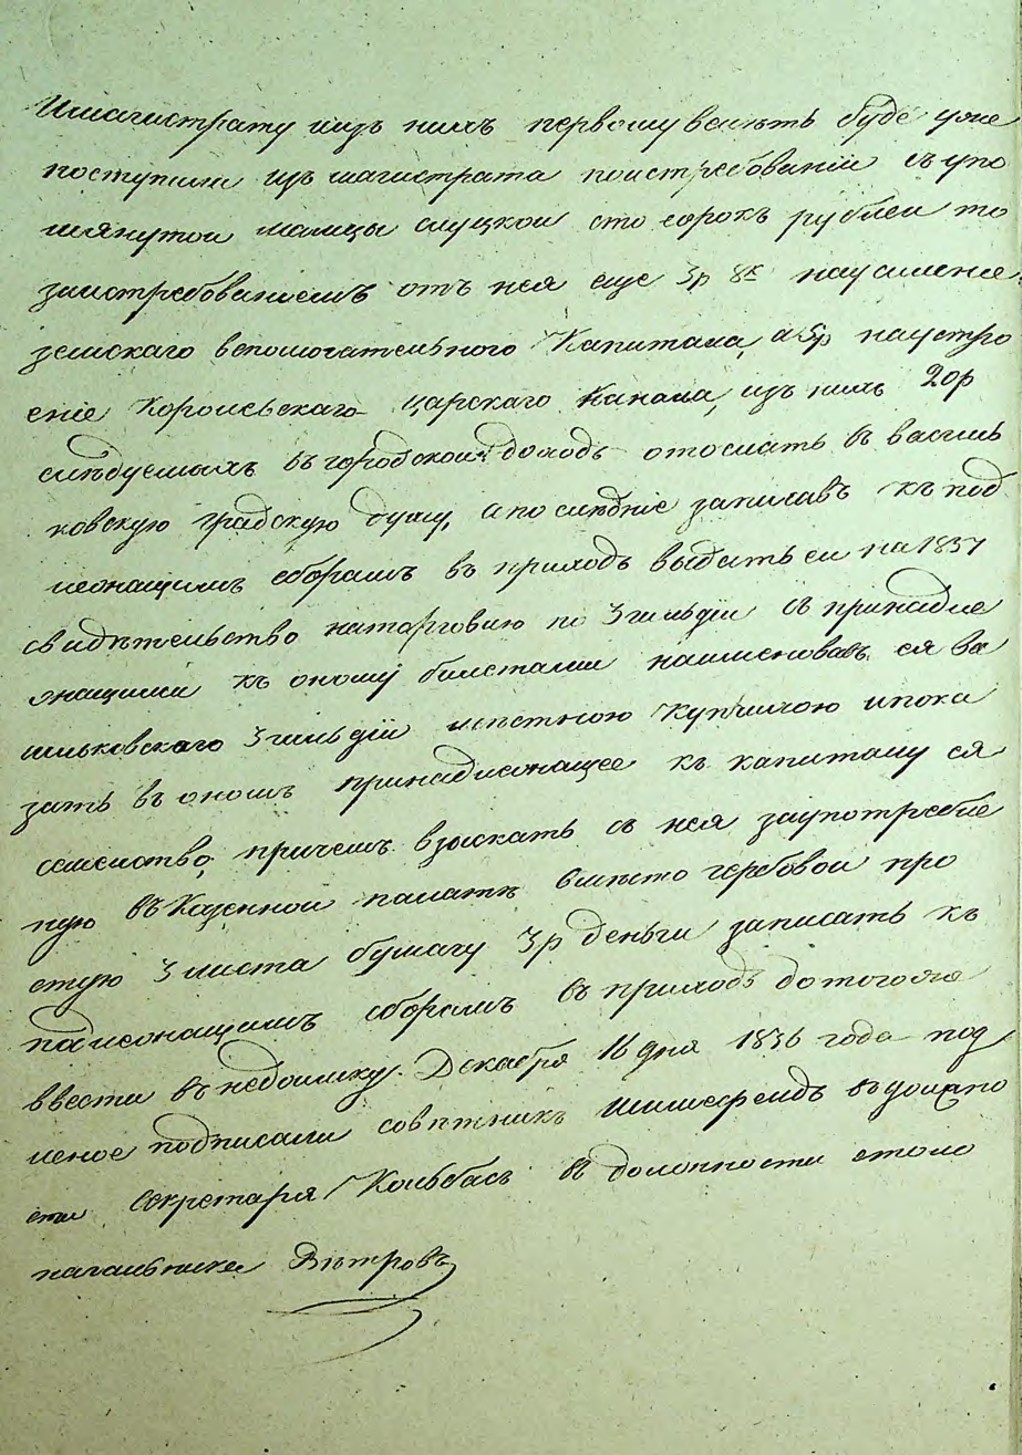 И магистрату и изъ нихъ первому велѣть буде уже
поступили изъ магистрата по истребованіи съ упо
мянутой Малцы Слуцкой сто сорокъ рублей то
за истребованіемъ отъ нея еще 3р 8к на усиленіе
земскаго вспомогательнаго Капитала, а 5р на устро
еніе Королевскаго царскаго Канала, изъ нихъ 20р
слѣдуемыхъ въ городской доходъ отослать въ Василь
ковскую градскую думу, а последніе записавъ къ под
лежащимъ сборамъ въ приходъ выдать ей на 1837
свидѣтельство на торговлю по 3 гильдіи съ принадле
жащими къ оному билетами наименовавъ ея Ва
сильковскаго 3 гильдіи местною Купчихою и пока
зать въ ономъ принадлежащее къ капиталу ея
семейство, причемъ взыскать съ нея за употребле
ную въ Казенной палатѣ вмѣсто гербовой про
стую 3 листа бумагу 3р деньги записать къ
надлежащимъ сборамъ въ приходъ до того же
ввести въ недоимку. Декабря 16 дня 1836 года под
леное подписали совѣтникъ в должно
сти Секретаря Колбасъ въ должности столо
начальника Вѣтровъ